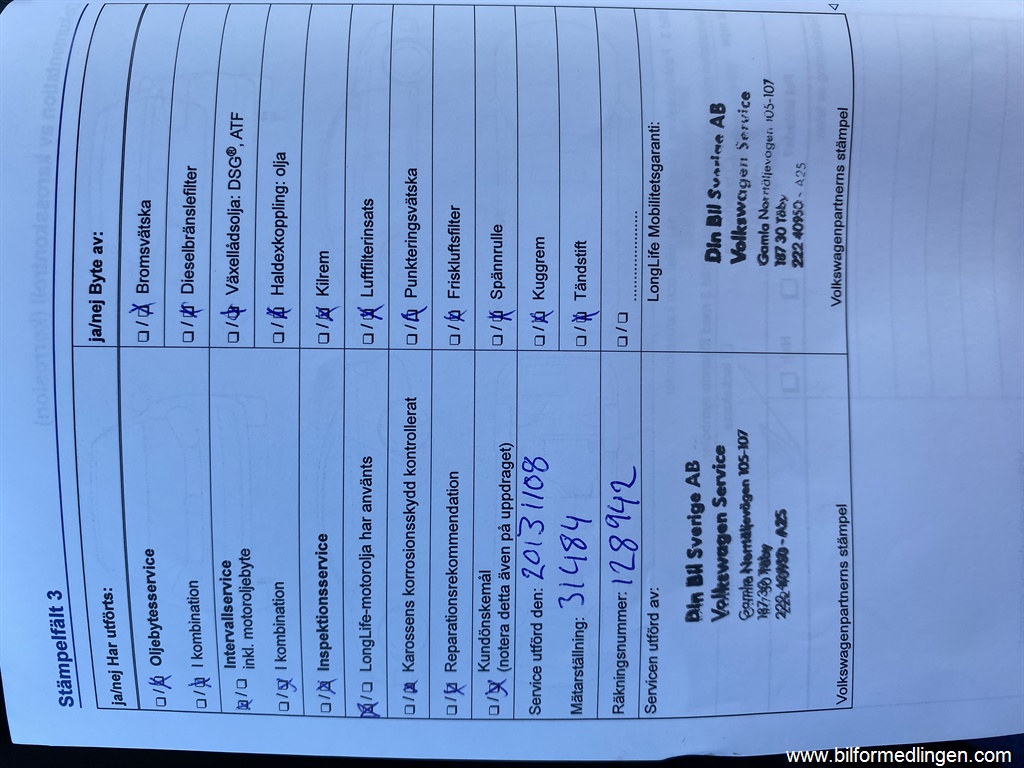 Stämpelfält 3
ja/nej Har utförts:
☐/☒ Oljebytesservice
☐/☒ I kombination
☒/☐ Intervallservice
inkl. motoroljebyte
☐/☒ I kombination
☐/☒ Inspektionsservice
☒/☐ LongLife-motorolja har använts
☐/☒ Karossens korrosionsskydd kontrollerat
☐/☒ Reparationsrekommendation
☐/☒ Kundönskemål
(notera detta även på uppdraget)
Service utförd den: 20131108
Mätarställning: 31484
Räkningsnummer: 128942
Servicen utförd av:
Din Bil Sverige AB
Volkswagen Service
Gamla Norrtäljevägen 105-107
187 30 Täby
222 40950 - A25
Volkswagenpartnerns stämpel
ja/nej Byte av:
☐/☒ Bromsvätska
☐/☒ Dieselbränslefilter
☐/☒ Växellådsolja: DSG®, ATF
☐/☒ Haldexkoppling: olja
☐/☒ Kilrem
☐/☒ Luftfilterinsats
☐/☒ Punkteringsvätska
☐/☒ Friskluftsfilter
☐/☒ Spännrulle
☐/☒ Kuggrem
☐/☒ Tändstift
☐/☐ ........................
LongLife Mobilitetsgaranti:
Din Bil Sverige AB
Volkswagen Service
Gamla Norrtäljevägen 105-107
187 30 Täby
222 40950 - A25
Volkswagenpartnerns stämpel
www.bilformedlingen.com